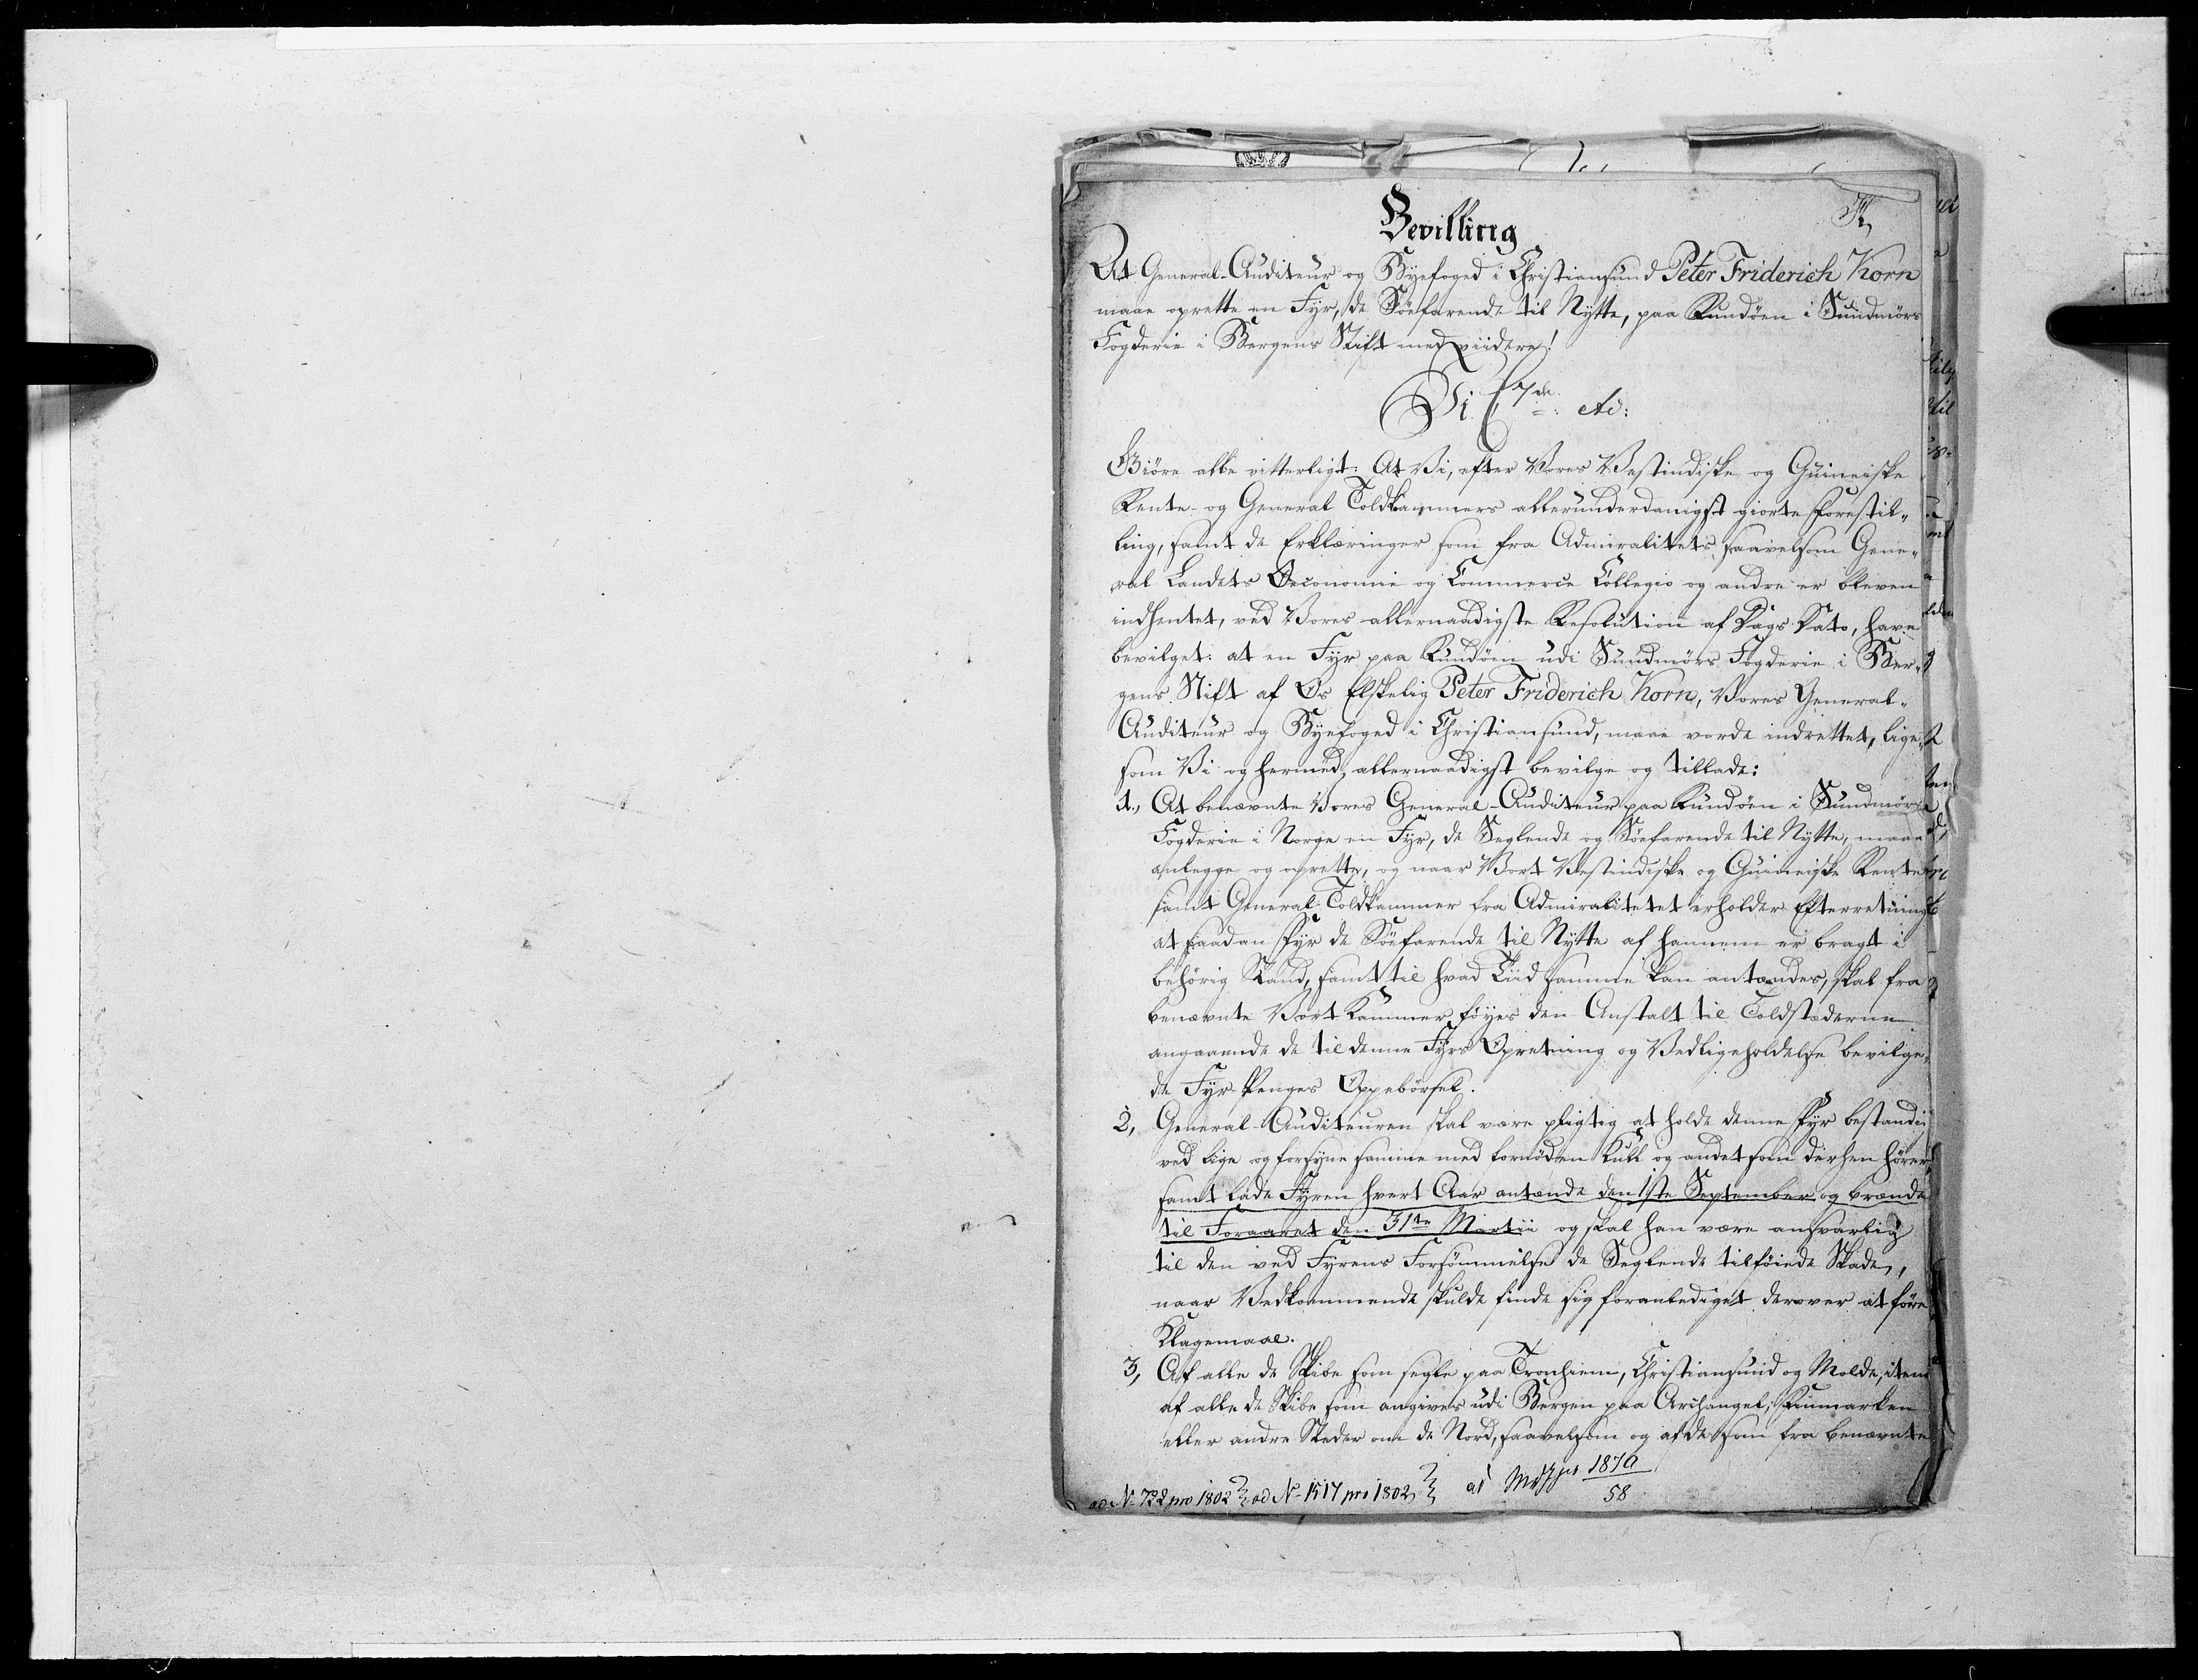 Bevilling
At General-Auditeur og Byefoged i Christiansund Peter Friderich Korn
maae oprette en Fyr, de Söefarende til Nytte, paa Rundöen i Sundmörs
Fogderie i Bergens Stift med viidere!
Vi C 7de etc:
Giöre alle vitterligt: At Vi, efter Vores Vestindiske og Guineiske
Rente- og General Toldkammers allerunderdanigst giorte Forestil„
ling, samt de Erklæringer som fra Admiralitets, saavelsom Gene„
ral Landets Oeconomie og Commerce Collegio og andre er bleven
indhentet, ved Vores allernaadigste Resolution af Dags Dato, have
bevilget: at en Fyr paa Rundöen udi Sundmörs Fogderie i Ber„
gens Stift af Os Elskelig Peter Friderich Korn, Vores General„
Auditeur og Byefoged i Christiansund, maae vorde indrettet, lige„
som Vi og hermed allernaadigst bevilge og tillade:
1., At benævnte Vores General-Auditeur paa Rundöen i Sundmörs
Fogderie i Norge en Fyr, de Seglende og Söefarende til Nytte, maae
anlegge og oprette, og naar Vort Vestindiske og Guineiske Rente
samt General-Toldkammer fra Admiralitetet erholder Efterretning
at saadan Fyr de Söefarende til Nytte af hannem er bragt i
behörig Stand, samt til hvad Tiid samme kan antændes, skal fra
benævnte Vort Kammer föyes den Anstalt til Toldstæderne
angaaende de til denne Fyrs Opretning og Vedligeholdelse bevilge„
de Fyr-Penges Oppebörsel.
2, General-Auditeuren skal være pligtig at holde denne Fyr bestandig
ved lige og forsyne samme med fornöden Kull og andet som derhen hörer,
samt lade Fyren hvert Aar antænde den 1ste September og brænde
til Foraaret den 31te Martii og skal han være ansvarlig
til den ved Fyrens Forsömmelse de Seglende tilföiede Skade,
naar Vedkommende skulde finde sig foranlediget derover at före
Klagemaal.
3, Af alle de Skibe som segle paa Tronhiem, Christiansund og Molde, item
af alle de Skibe som angives udi Bergen paa Archangel, Finmarken
eller andre Steder om de Nord, saavelsom og af de som fra benævnte
ad No 722 pro 1802 ad No 1517 pro 1802
1870
58